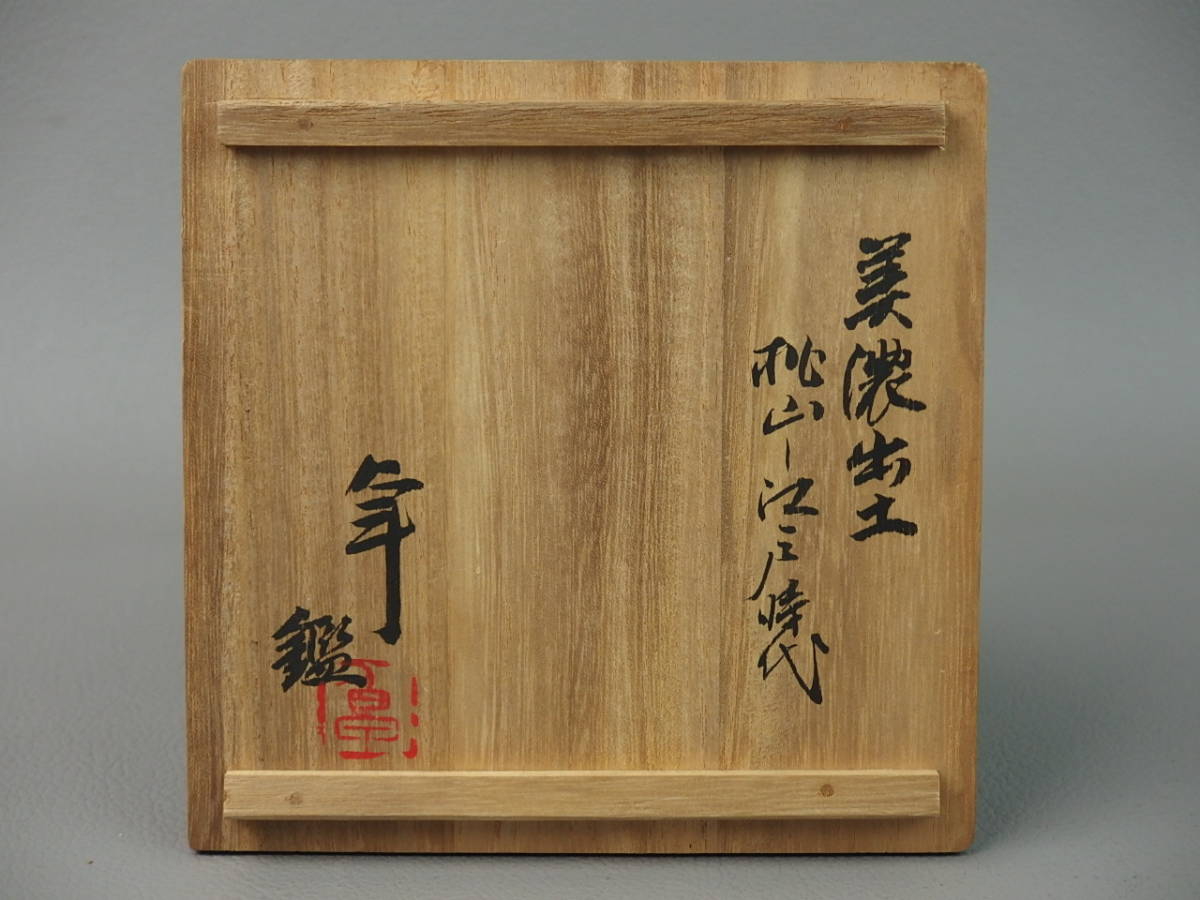 美濃出土
桃山〜江戸時代
年
鑑